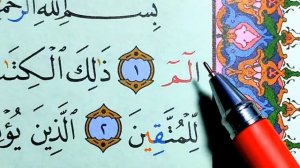 بِسْمِ ٱللَّهِ ٱلرَّحْمَٰ
الٓمٓ ١ ذَٰلِكَ ٱلْكِتَٰ
لِّلْمُتَّقِينَ ٢ ٱلَّذِينَ يُؤْ